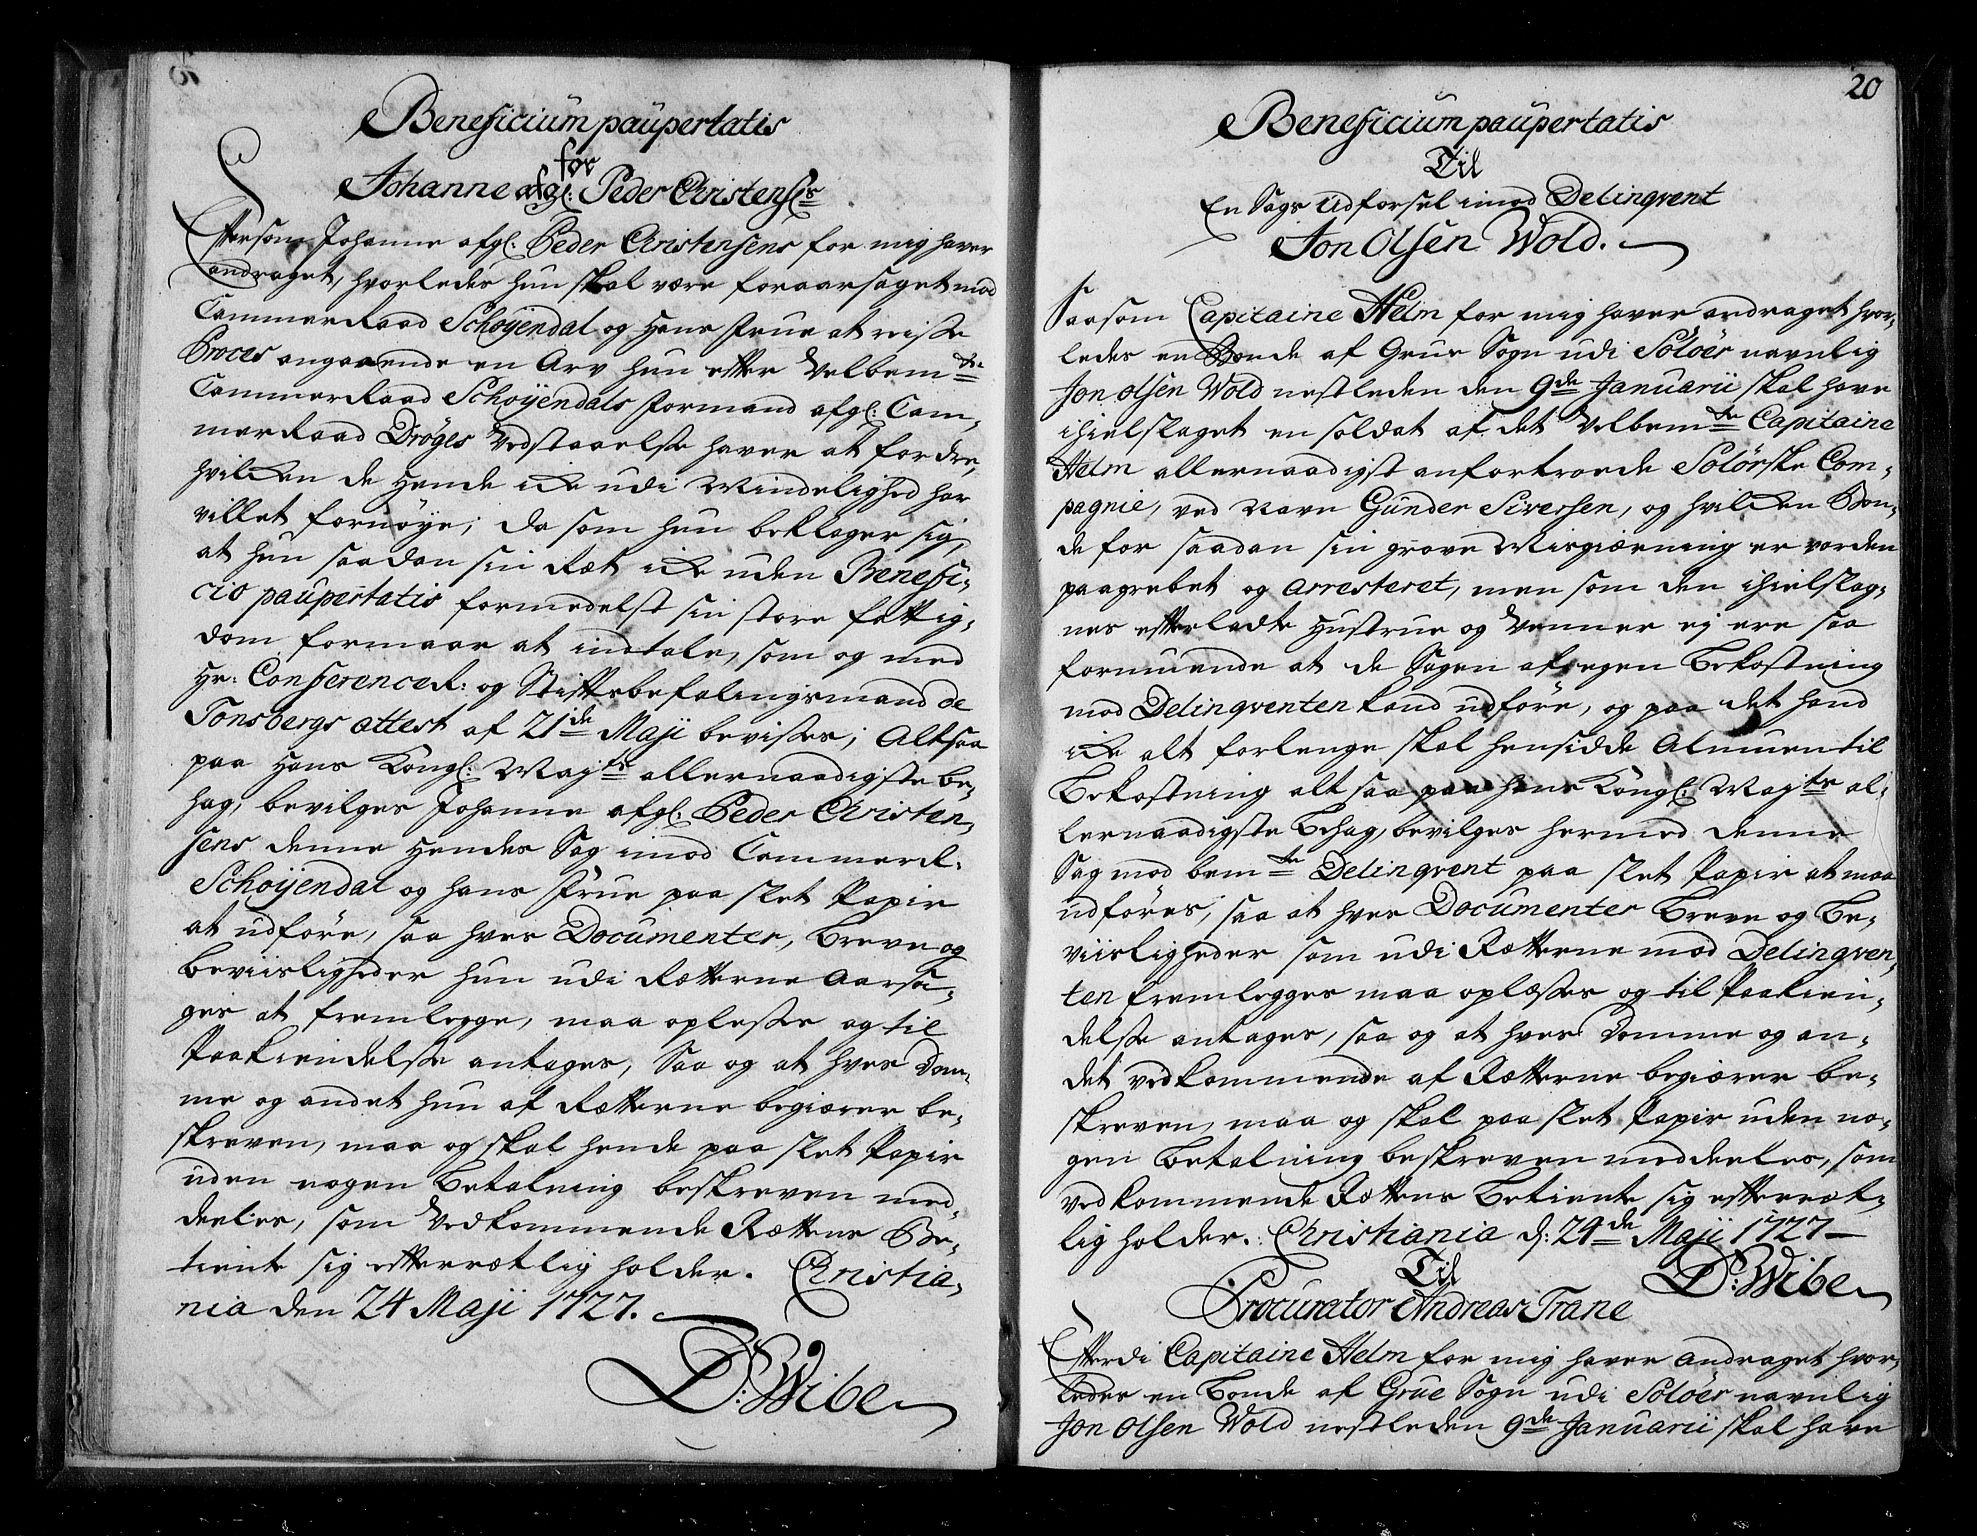 Beneficium paupertatis
for
Johanne afgl: Peder Christens:
Eftersom Johanne afgl: Peder Christensens for mig haver
andraget, hvorledes hun skal være foraarsaget mod
Cammerraad Schøyendal og Hans Frue at reisse
Proces angaaende en Arv hun efter Velbem.te
Cammerraad Schøyendals Formand afgl: Cam-
merraad Drøges Vedstaaelse haver at fordre,
hvilken de Hende icke udi Mindelighed har
villet fornøye; da som hun beklager sig,
at hun saadan sin Ræt icke uden Benefi-
cio paupertatis formedelst sin store fattig-
dom formaar at indtale, som og med
Hr: Conferencer: og Stiftsbefalingsmand de
Tonsbergs attest af 21de Maji bevisses; Altsaa
paa Hans Kongl: May.ts allernaadigste be-
hag, bevilges Johanne afgl: Peder Christen-
sens denne Hendes Sag imod Cammerr:
Schøijendal og hans Frue paa slet Papir
at udføre, saa hves Documenter, Breve og
Beviisligheder hun udi Rætterne aarsa-
ges at fremlegge, maa oplesse og til
Paakiendelse antages, Saa og at hves Dom-
me og andet hun af Rætterne begiærer be-
skreven, maa og skal hende paa slet Papir
uden nogen Betalning beskreven med-
deeles, som Vedkommende Rættens Be-
tiente sig efterrætlig holder. Christia-
nia den 24 Maji 1727.
D: Wibe
20
Beneficium paupertatis
Til
En Sags Udførsel imod Delinqvent
Jon Olsen Wold.
Saasom Capitaine Helm for mig haver andraget hvor-
ledes en Bonde af Grue Sogn udi Soløer navnlig
Jon Olsen Wold nestleden den 9de Januarii skal have
ihielslaget en soldat af det Velbem.te Capitaine
Helm allernaadigst anfortroede Solørske Com-
pagnie, ved Navn Gunder Siversen, og hvilken Bon-
de for saadan sin grove Misgiærning er vorden
paagrebet og arresteret, men som den ihielslag-
nes efterladte Hustrue og Venner ej ere saa
formuende at de Sagen af egen Bekostning
mod Delinqventen kand udføre, og paa det hand
icke alt forlenge skal hensidde Almuen til
Bekostning alt saa paa hans Kongl: May.ts al-
lernaadigste Behag, bevilges hermed denne
Sag mod bem.te Delinqvent paa slet Papir at maa
udføres, saa at hves Documenter Breve og Be-
viisligheder som udi Rætterne mod Delinqven-
ten fremlegges maa oplæsses og til Paakien-
delse antages, saa og at hves Domme og an-
det vedkommende af Rætterne begiærer be-
skreven, maa og skal paa slet Papir uden no-
gen Betalning beskreven meddeeles, som
vedkommende Rættens Betiente sig efterræt-
lig holder. Christiania d: 24de Maji 1727
D: Wibe
Til
Procurator Andreas Trane
Efterdi Capitaine Helm for mig haver andraget hvor-
ledes en Bonde af Grue Sogn udi Soløer navnlig
Jon Olsen Wold nestleden 9de Januarii skal have